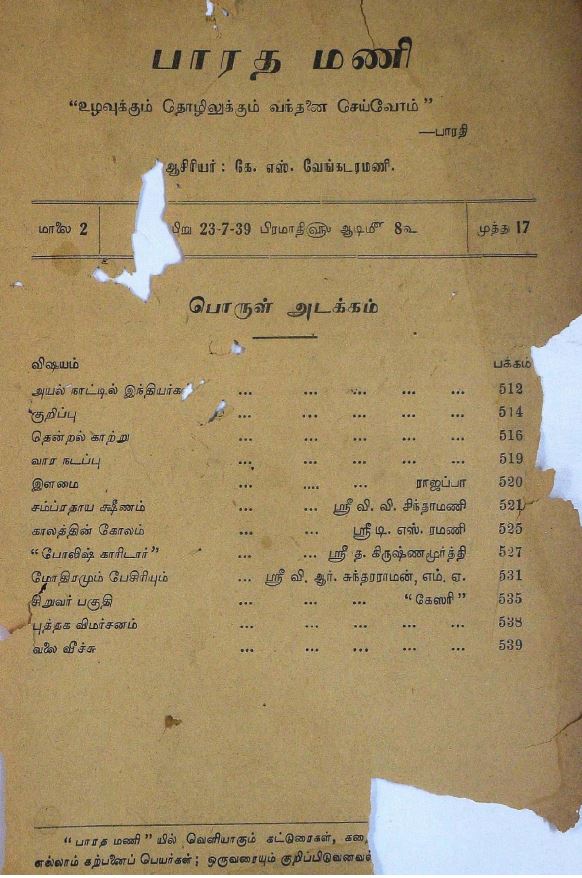 பாரத மணி
“உழவுக்கும் தொழிலுக்கும் வந்தனை செய்வோம்”
—பாரதி
ஆசிரியர் : கே. எஸ். வேங்கடரமணி.
மாலை 2 23-7-39 பிரமாதி௵ ஆடி௴ 8௳ முத்து 17
பொருள் அடக்கம்
விஷயம் பக்கம்
அயல் நாட்டில் இந்தியர்க ... ... ... ... ... 512
குறிப்பு ... ... ... ... ... 514
தென்றல் காற்று ... ... ... ... ... 516
வார நடப்பு ... ... ... ... ... 519
இளமை ... .... ... ராஜப்பா 520
சம்ப்ரதாய க்ஷீணம் ... ... ஸ்ரீ வி. வி. சிந்தாமணி 521
காலத்தின் கோலம் ... ... ஸ்ரீ டி. எஸ். ரமணி 525
“போலிஷ் காரிடார்” ... ... ஸ்ரீ த. கிருஷ்ணமூர்த்தி 527
மோதிரமும் பேசிரியும் ... ஸ்ரீ வி. ஆர். சுந்தரராமன், எம். ஏ. 531
சிறுவர் பகுதி ... ... ... “கேஸரி” 535
புத்தக விமர்சனம் ... ... ... ... ... 538
வலை வீச்சு ... ... ... ... ... 539
“பாரத மணி” யில் வெளியாகும் கட்டுரைகள்,
எல்லாம் கற்பனைப் பெயர்கள் ; ஒருவரையும்